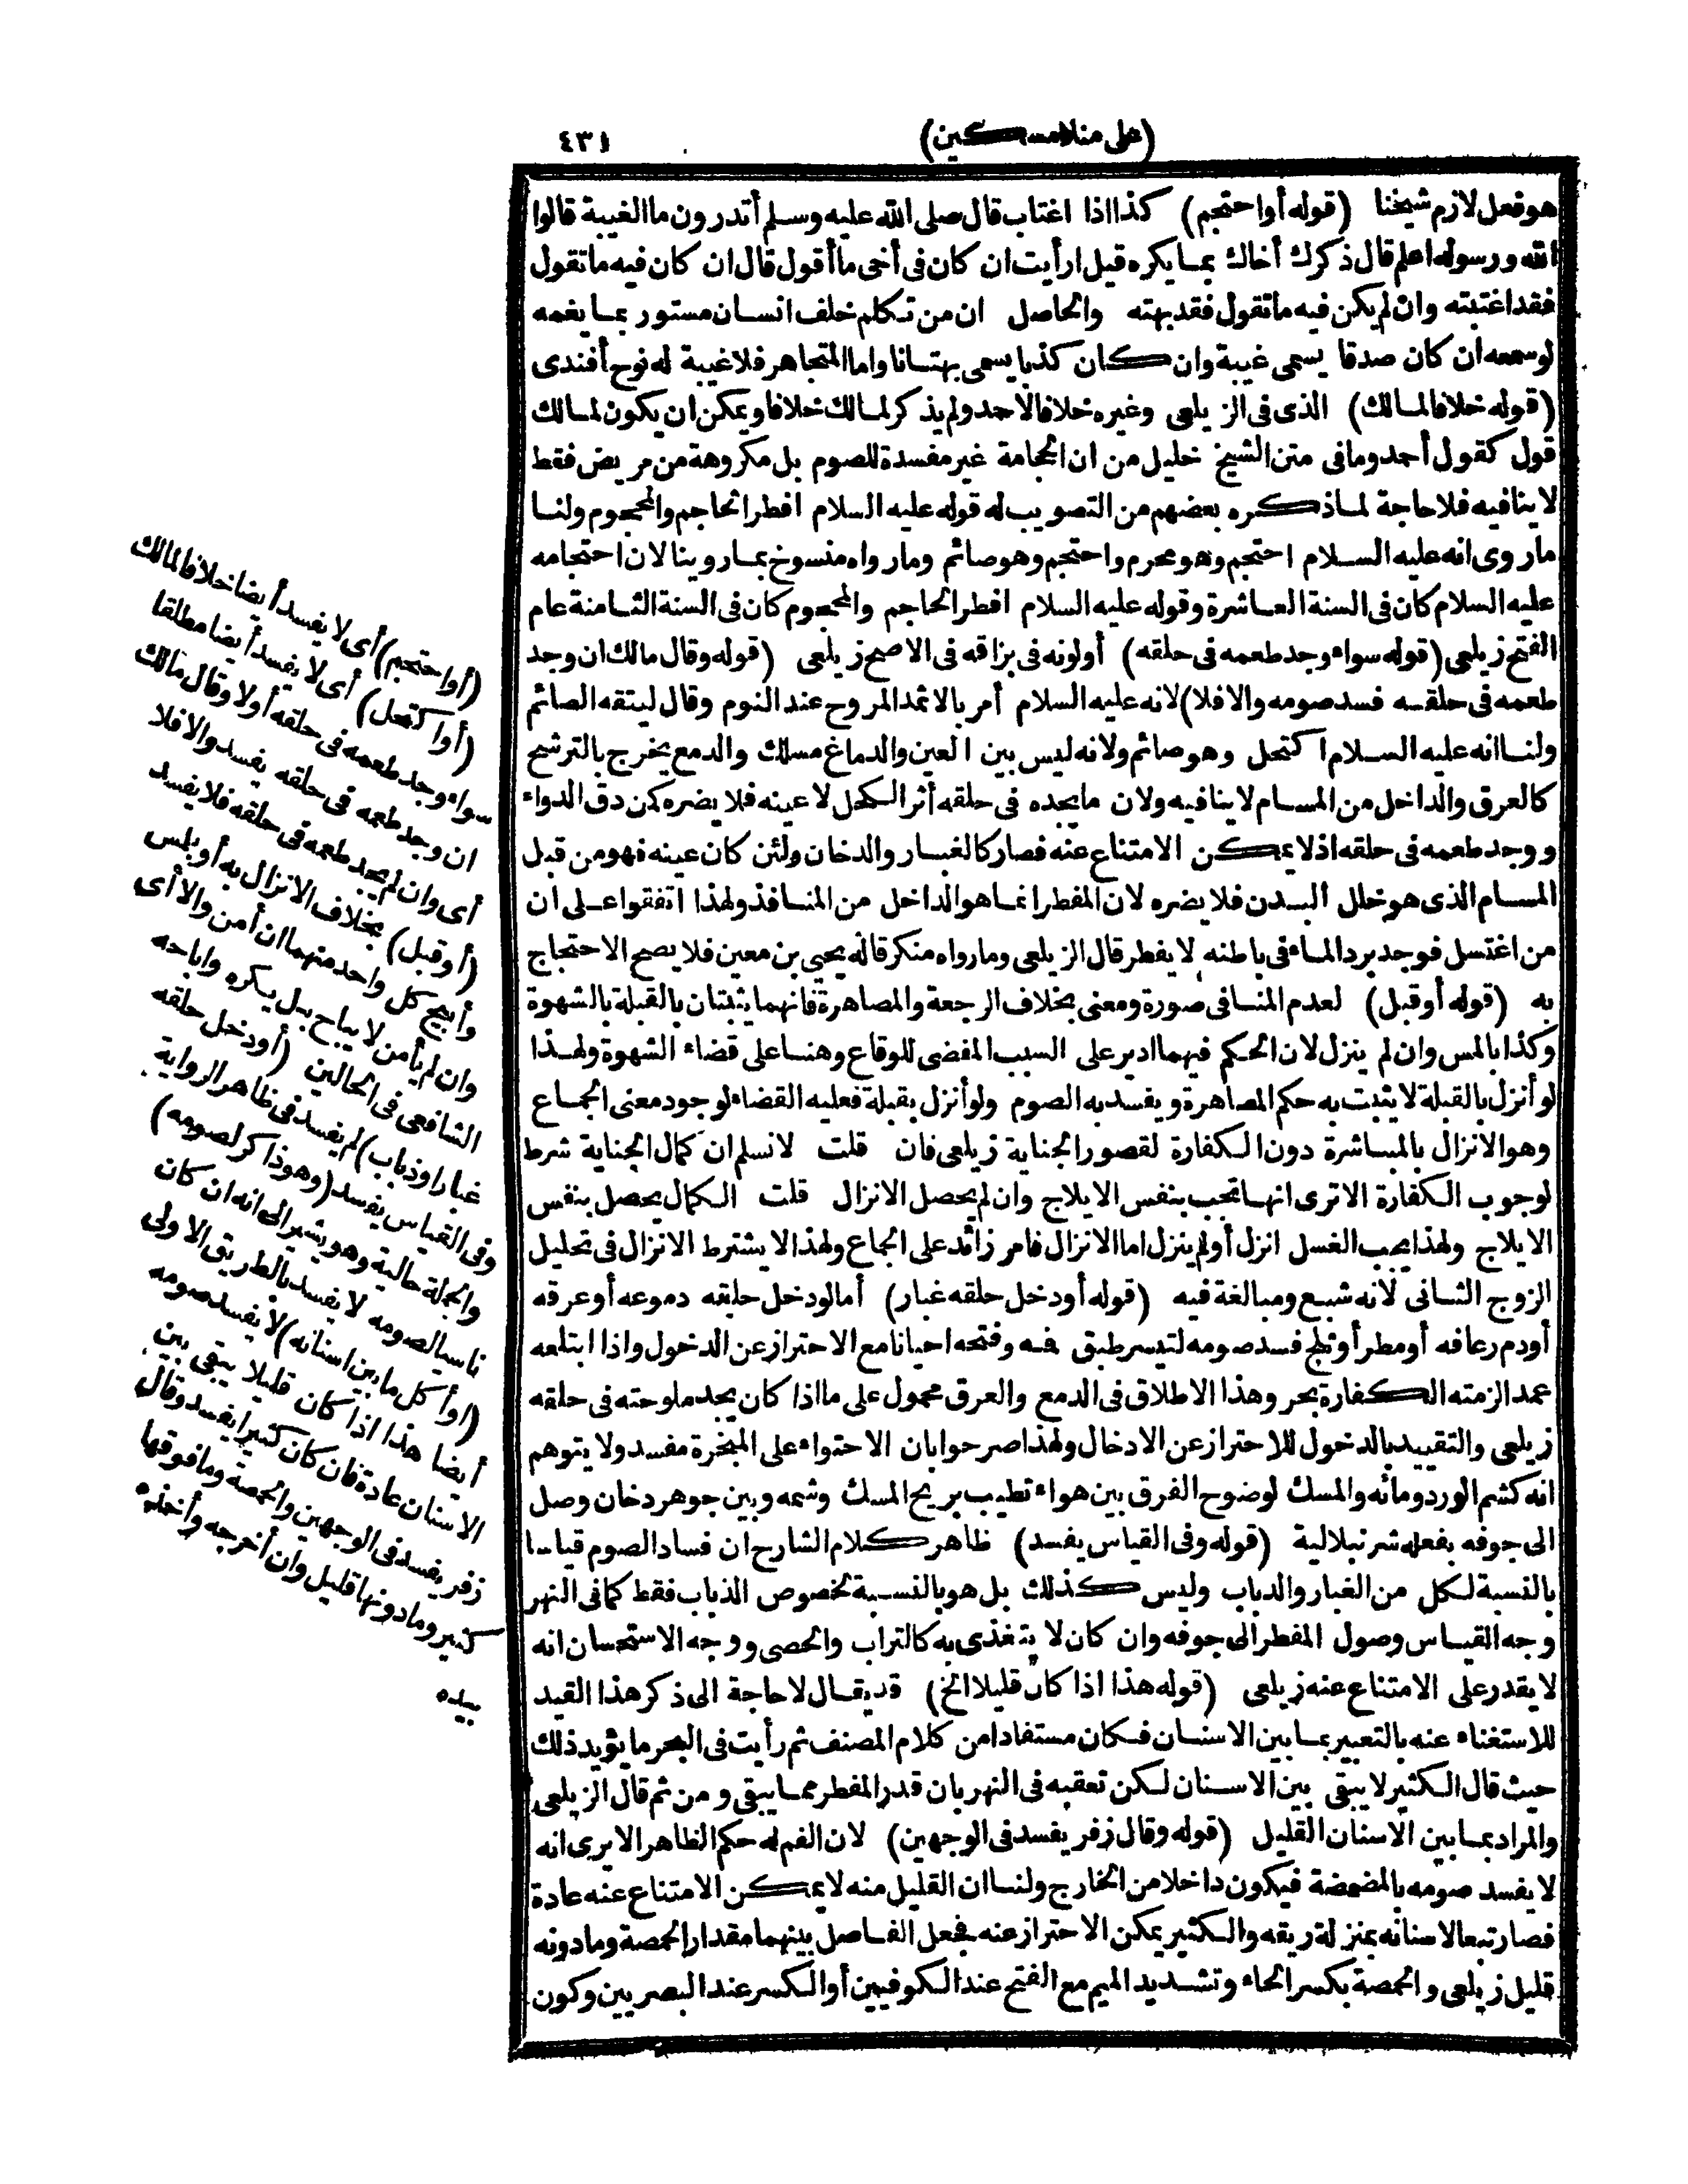 (على منلا مسكين) ٤٣١
هو فعل لازم شيخنا (قوله أو احتجم) كذا اذا اغتاب قال صلى الله عليه وسلم أتدرون ما الغيبة قالوا
الله ورسوله اعلم قال ذكرك أخاك بما يكره قيل ارأيت ان كان فى أخى ما أقول قال ان كان فيه ما تقول
فقد اغتبته وان لم يكن فيه ما تقول فقد بهته والحاصل ان من تكلم خلف انسان مستور بما يغمه
لو سمعه ان كان صدقا يسمى غيبة وان كان كذبا يسمى بهتانا واما المتجاهر فلا غيبة له نوح أفندى
(قوله خلافا لمالك) الذى فى الزيلعى وغيره خلافا لاحمد ولم يذكر لمالك خلافا ويمكن ان يكون لمالك
قول كقول أحمد وما فى متن الشيخ خليل من ان الحجامة غير مفسدة للصوم بل مكروهة من مريض فقط
لا ينافيه فلا حاجة لما ذكره بعضهم من التصويب له قوله عليه السلام افطر الحاجم والمحجوم ولنا
ما روى انه عليه السلام احتجم وهو محرم واحتجم وهو صائم وما رواه منسوخ بما روينا لان احتجامه
عليه السلام كان فى السنة العاشرة وقوله عليه السلام افطر الحاجم والمحجوم كان فى السنة الثامنة عام
الفتح زيلعى (قوله سواء وجد طعمه فى حلقه) أو لونه فى بزاقه فى الاصح زيلعى (قوله وقال مالك ان وجد
طعمه فى حلقه فسد صومه والا فلا) لانه عليه السلام أمر بالاثمد المروح عند النوم وقال ليتقه الصائم
ولنا انه عليه السلام اكتحل وهو صائم ولانه ليس بين العين والدماغ مسلك والدمع يخرج بالترشح
كالعرق والداخل من المسام لا ينافيه ولان ما يجده فى حلقه أثر الكحل لا عينه فلا يضره كمن دق الدواء
ووجد طعمه فى حلقه اذ لا يمكن الامتناع عنه فصار كالغبار والدخان ولئن كان عينه فهو من قبل
المسام الذى هو خلل البدن فلا يضره لان المفطر انما هو الداخل من المنافذ ولهذا اتفقوا على ان
من اغتسل فوجد برد الماء فى باطنه لا يفطر قال الزيلعى وما رواه منكر قاله يحيى بن معين فلا يصح الاحتجاج
به (قوله أو قبل) لعدم المنافى صورة ومعنى بخلاف الرجعة والمصاهرة فانهما يثبتان بالقبلة بالشهوة
وكذا بالمس وان لم ينزل لان الحكم فيهما ادير على السبب المفضى للوقاع وهنا على قضاء الشهوة ولهذا
لو أنزل بالقبلة لا يثبت به حكم المصاهرة ويفسد به الصوم ولو أنزل بقبلة فعليه القضاء لوجود معنى الجماع
وهو الانزال بالمباشرة دون الكفارة لقصور الجناية زيلعى فان قلت لا نسلم ان كمال الجناية شرط
لوجوب الكفارة الا ترى انها تجب بنفس الايلاج وان لم يحصل الانزال قلت الكمال يحصل بنفس
الايلاج ولهذا يجب الغسل انزل أو لم ينزل اما الانزال فامر زائد على الجماع ولهذا لا يشترط الانزال فى تحليل
الزوج الثانى لانه شبع ومبالغة فيه (قوله أو دخل حلقه غبار) أما لو دخل حلقه دموعه أو عرقه
أو دم رعافه أو مطر أو ثلج فسد صومه لتيسر طبق فمه وفتحه احيانا مع الاحتراز عن الدخول واذا ابتلعه
عمدا لزمته الكفارة بحر وهذا الاطلاق فى الدمع والعرق محمول على ما اذا كان يجد ملوحته فى حلقه
زيلعى والتقييد بالدخول للاحتراز عن الادخال ولهذا صرحوا بان الاحتواء على المبخرة مفسد ولا يتوهم
انه كشم الورد ومائه والمسك لوضوح الفرق بين هواء تطيب بريح المسك وشمه وبين جوهر دخان وصل
الى جوفه بفعله شرنبلالية (قوله وفى القياس يفسد) ظاهر كلام الشارح ان فساد الصوم قياسا
بالنسبة لكل من الغبار والذباب وليس كذلك بل هو بالنسبة لخصوص الذباب فقط كما فى النهر
وجه القياس وصول المفطر الى جوفه وان كان لا يتغذى به كالتراب والحصى ووجه الاستحسان انه
لا يقدر على الامتناع عنه زيلعى (قوله هذا اذا كان قليلا الخ) قد يقال لا حاجة الى ذكر هذا القيد
للاستغناء عنه بالتعبير بما بين الاسنان فكان مستفادا من كلام المصنف ثم رأيت فى البحر ما يؤيد ذلك
حيث قال الكثير لا يبقى بين الاسنان لكن تعقبه فى النهر بان قدر المفطر مما يبقى ومن ثم قال الزيلعى
والمراد بما بين الاسنان القليل (قوله وقال زفر يفسد فى الوجهين) لان الفم له حكم الظاهر الا يرى انه
لا يفسد صومه بالمضمضة فيكون داخلا من الخارج ولنا ان القليل منه لا يمكن الامتناع عنه عادة
فصار تبعا لاسنانه بمنزلة ريقه والكثير يمكن الاحتراز عنه فجعل الفاصل بينهما مقدار الحمصة وما دونه
قليل زيلعى والحمصة بكسر الحاء وتشديد الميم مع الفتح عند الكوفيين أو الكسر عند البصريين وكون
(أو احتجم) أى لا يفسد أيضا خلافا لمالك
(أو اكتحل) أى لا يفسد أيضا مطلقا
سواء وجد طعمه فى حلقه أو لا وقال مالك
ان وجد طعمه فى حلقه يفسد والا فلا
أى وان لم يجد طعمه فى حلقه فلا يفسد
(أو قبل) بخلاف الانزال به أو بلمس
وأبيح كل واحد منهما ان أمن والا أى
وان لم يأمن لا يباح بل يكره واباحه
الشافعى فى الحالين (أو دخل حلقه
غبار او ذباب) لم يفسد فى ظاهر الرواية
وفى القياس يفسد (وهو ذاكر لصومه)
والجملة حالية وهو يشير الى انه ان كان
ناسيا لصومه لا يفسد بالطريق الاولى
(او أكل ما بين اسنانه) لا يفسد صومه
أيضا هذا اذا كان قليلا يبقى بين
الاسنان عادة فان كان كثيرا يفسد وقال
زفر يفسد فى الوجهين والحمصة وما فوقها
كثير وما دونها قليل وان أخرجه وأخذه
بيده